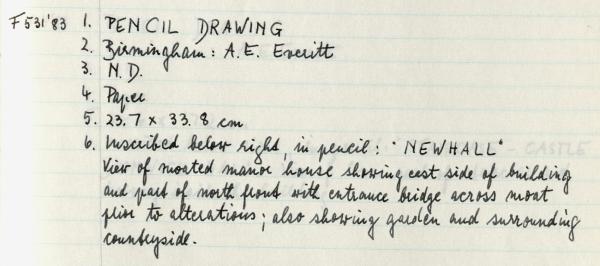 F531'83 1. PENCIL DRAWING
2. Birmingham: A.E. Everitt
3. N.D.
4. Paper
5. 23.7 x 33.8 cm
6. Inscribed below right, in pencil: "NEWHALL"
View of moated manor house showing east side of building
and part of north front with entrance bridge across moat
prior to alterations; also showing garden and surrounding
countryside.